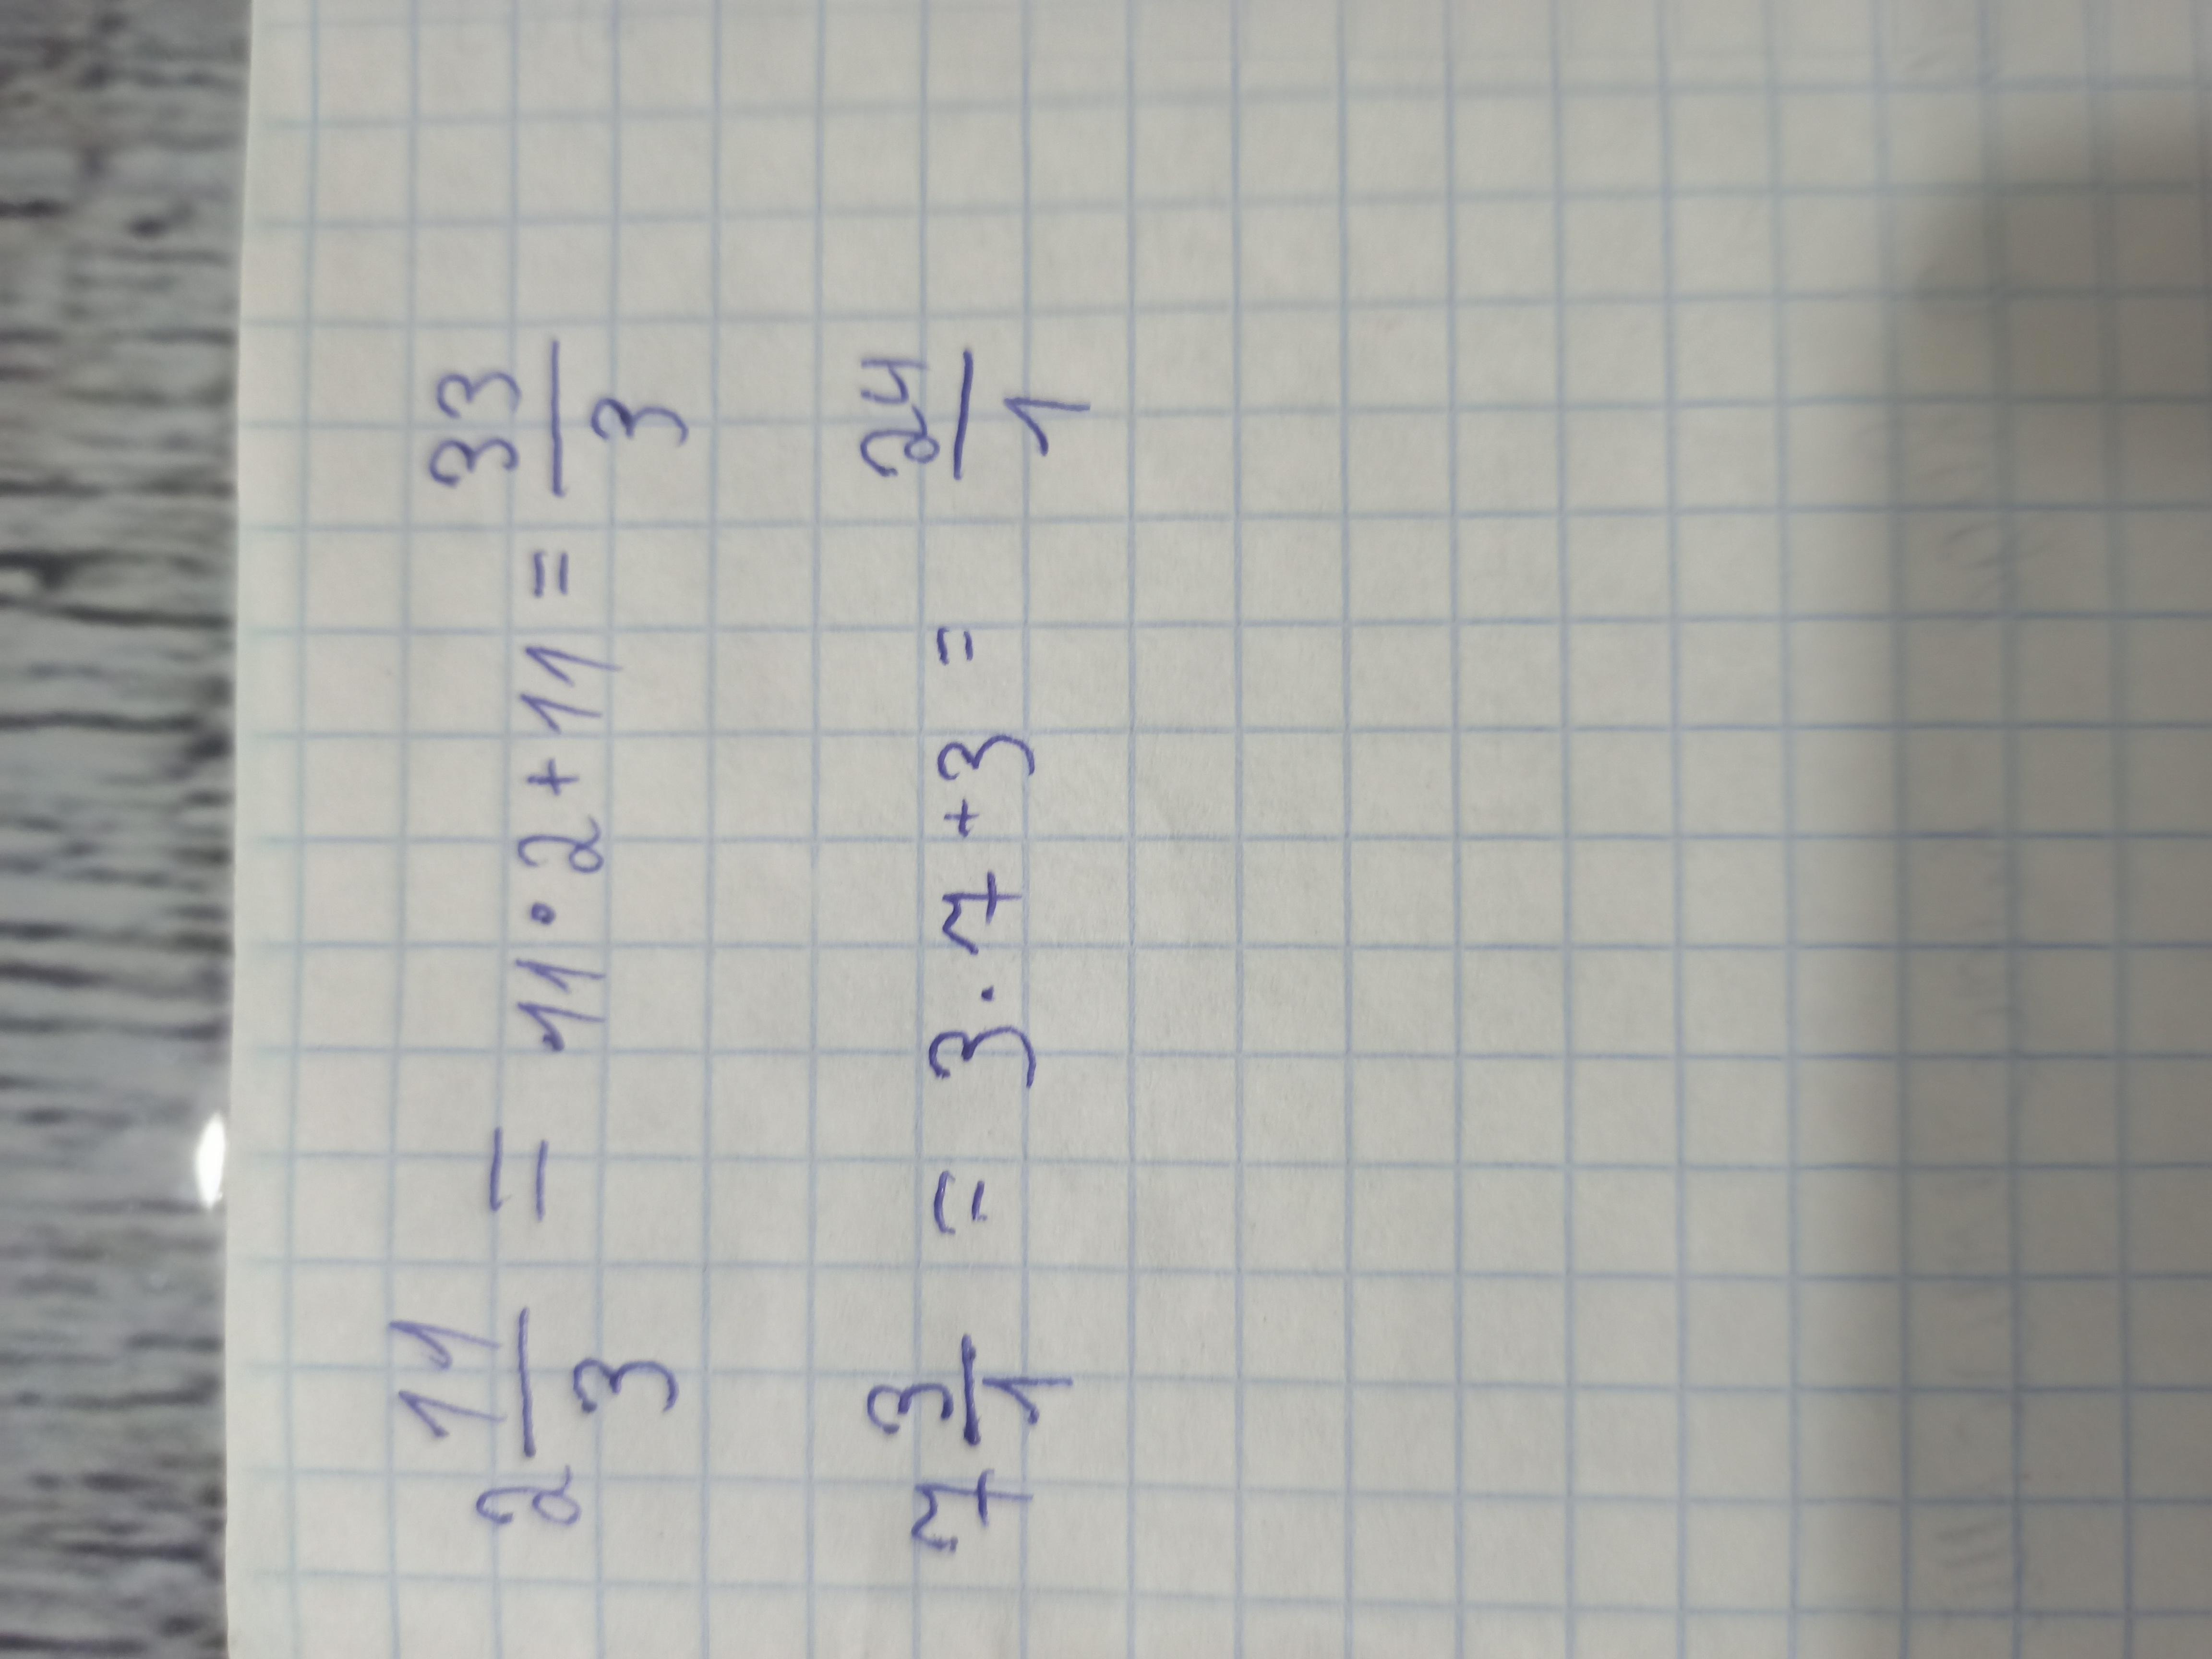 2 11/3 = 11 · 2 + 11 = 33/3
7 3/1 = 3 · 7 + 3 = 24/1